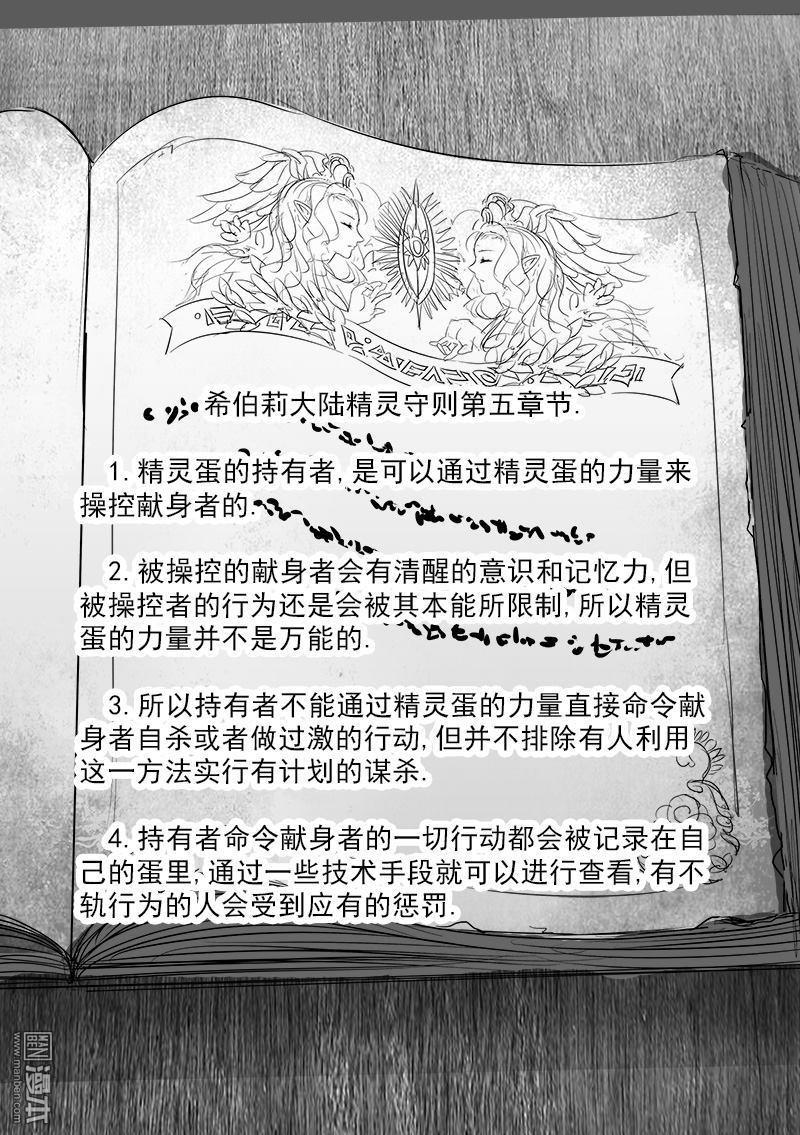 希伯莉大陆精灵守则第五章节.
1.精灵蛋的持有者,是可以通过精灵蛋的力量来
操控献身者的.
2.被操控的献身者会有清醒的意识和记忆力,但
被操控者的行为还是会被其本能所限制,所以精灵
蛋的力量并不是万能的.
3.所以持有者不能通过精灵蛋的力量直接命令献
身者自杀或者做过激的行动,但并不排除有人利用
这一方法实行有计划的谋杀.
4.持有者命令献身者的一切行动都会被记录在自
己的蛋里,通过一些技术手段就可以进行查看,有不
轨行为的人会受到应有的惩罚.
www.manben.com
MAN
BEN
漫本